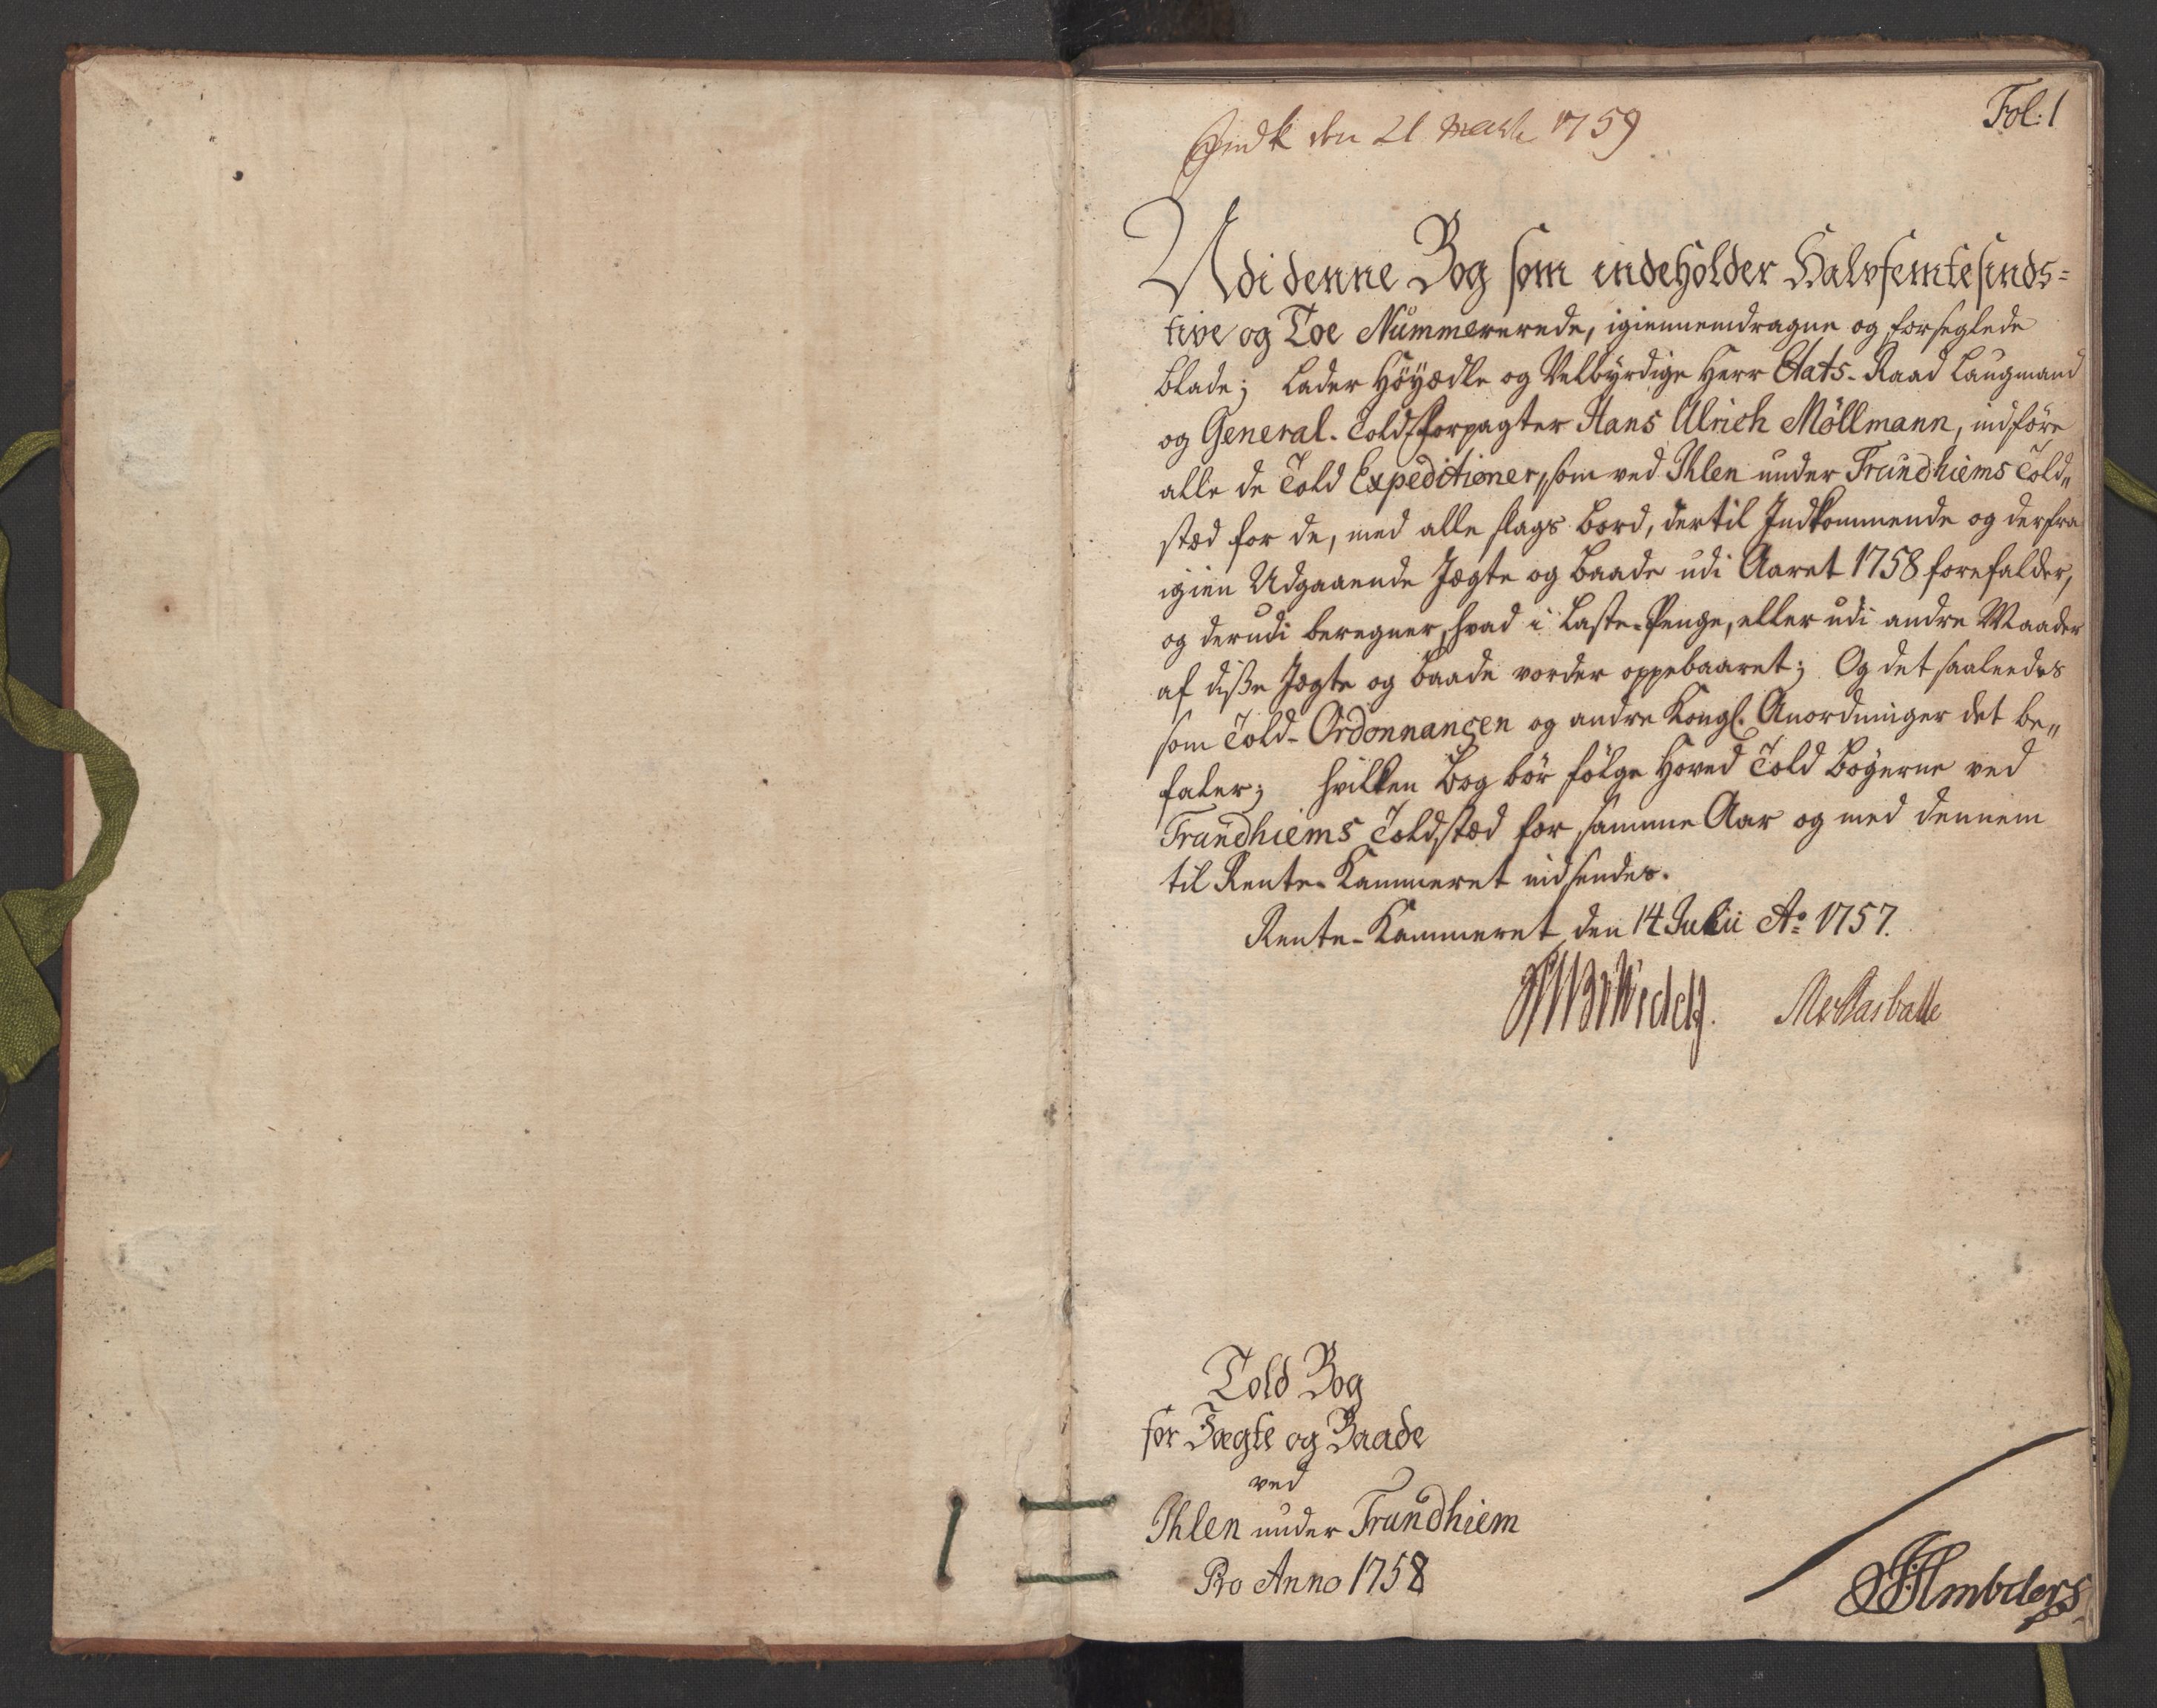 Fol: 1
Indk den 21 Martz 1759
Udi denne Bog som indeholder Halvfemtesinds=
tive og Toe Nummererede, igiennemdragne og forseglede
blade; Lader Höÿædle og Velbÿrdige Herr Etats-Raad Laugmand
og General-Told-Forpagter Hans Ulrich Möllmann, indföre
alle de Told Expeditioner, som ved Ihlen under Trundhiems Told„
stæd for de, med alle slags Bord, dertil Indkommende og derfra
igien Udgaaende Jægte og Baade udi Aaret 1758 forefalder,
og derudi beregner, hvad i Laste-Penge, eller udi andre Maader
af diße Jægte og Baade vorder oppebaaret; Og det saaleedes
som Told-Ordonnancen og andre Kongl. Anordninger det be„
faler; hvilken Bog bör fölge Hoved Told Bögerne ved
Trundhiems Toldstæd for samme Aar og med dennem
til Rente-Kammeret indsendes.
Rente-Kammeret den 14 Julii Ao 1757.
Told Bog
for Jægte og Baade
ved
Ihlen under Trundhiem
Pro Anno 1758